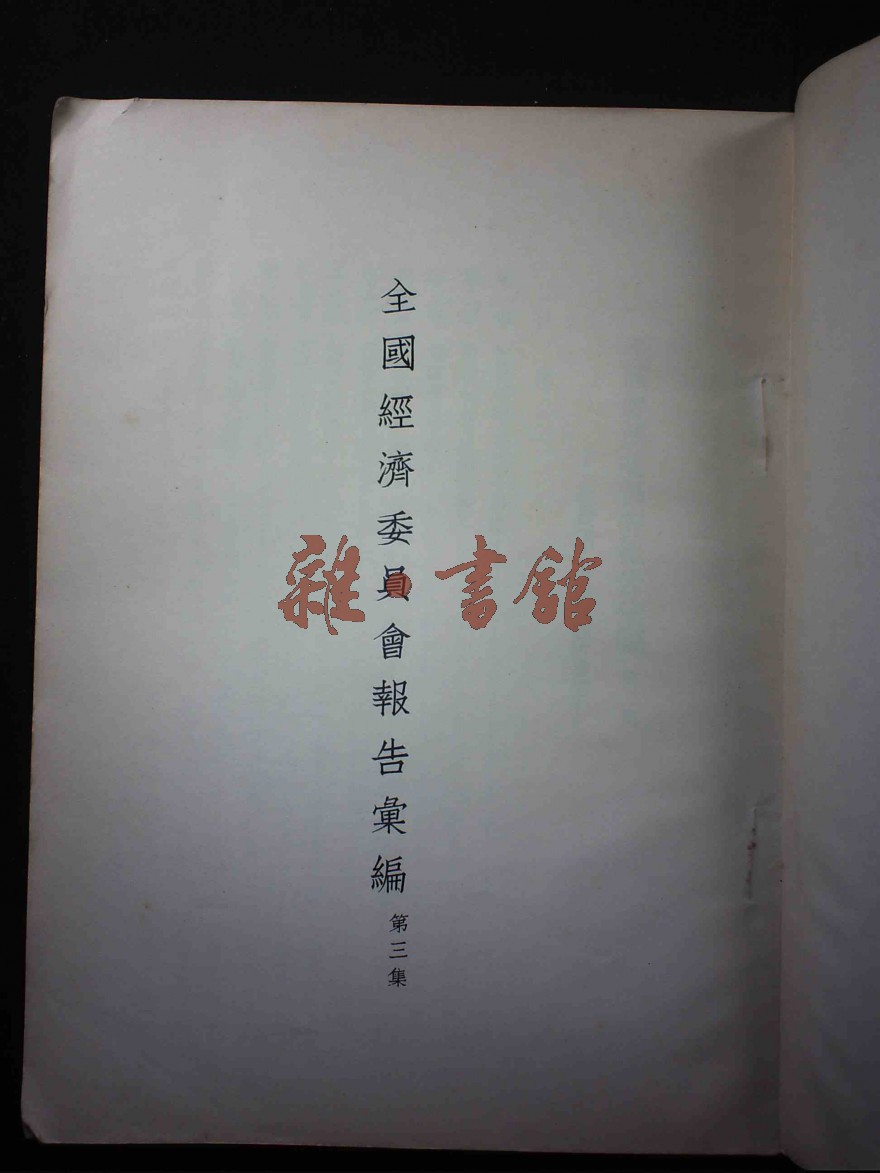 全國經濟委員會報告彙編
第三集
雜書館